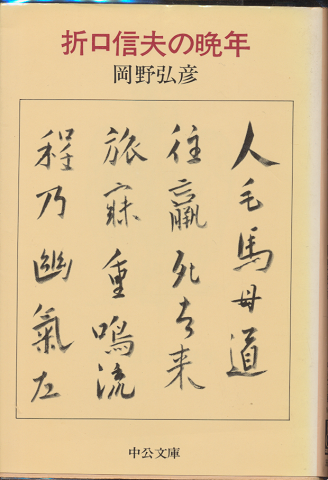 折口信夫の晩年
岡野弘彦
人毛馬毋道
往羸死去来
旅寐重鳴流
程乃幽氣左
中公文庫